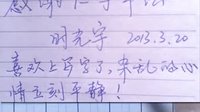 时光宇 2013.3.20
喜欢上写字了,杂乱的心
情立刻平静!